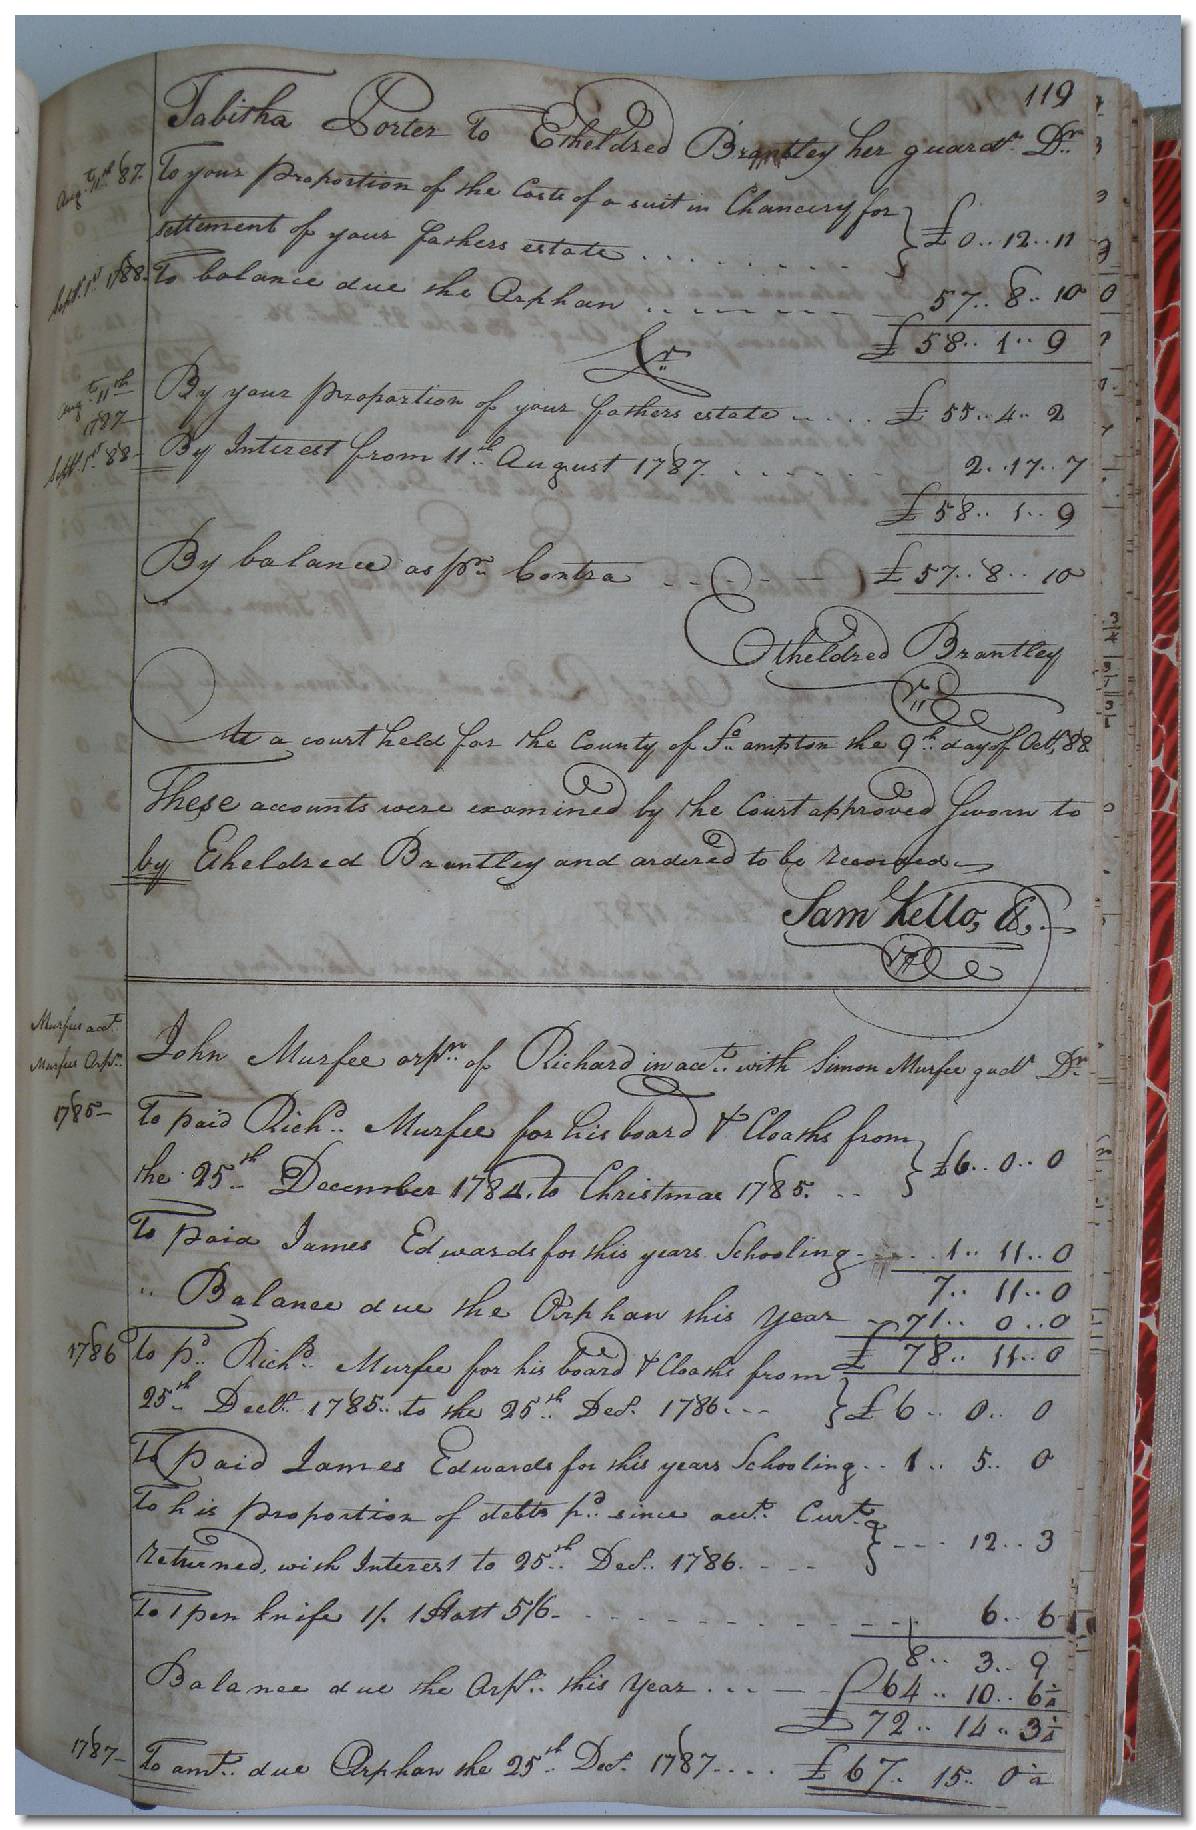 119
Tabitha Porter to Etheldred Brantley her guardn. Dr.
Augt. 11th 87. To your proportion of the Costs of a suit in Chancery for
settlement of your fathers estate . . . . . . . . . } £ 0 .. 12 .. 11
Sept. 1st 1788. To balance due the Orphan . . . . . . . 57 .. 8 .. 10
£ 58 .. 1 .. 9
Cr.
Augt. 11th 1787 By your proportion of your fathers estate . . . . £ 55 .. 4 .. 2
Sept. 1st 88 By Interest from 11th August 1787 . . . . . . 2 .. 17 .. 7
£ 58 .. 1 .. 9
By balance as pr. Contra . . . . . £ 57 .. 8 .. 10
Etheldred Brantley
At a court held for the County of So.ampton the 9th day of Octr. 88
These accounts were examined by the Court approved Sworn to
by Etheldred Brantley and ordered to be recorded
Sam Kello, Cl.
Murfees acct.
Murfees Orpn.
John Murfee orpn. of Richard in acct. with Simon Murfee gudn Dr.
1785 To paid Richd. Murfee for his board & Cloaths from
the 25th December 1784. to Christmas 1785. .. } £6 .. 0 .. 0
To paid James Edwards for this years Schooling . . . 1 .. 11 .. 0
7 .. 11 .. 0
" Balance due the Orphan this year 71 .. 0 .. 0
£ 78 .. 11 .. 0
1786 To pd. Richd. Murfee for his board & Cloaths from
25th Decbr. 1785 .. to the 25th Decr. 1786 . . . } £ 6 .. 0 .. 0
To paid James Edwards for this years Schooling . . 1 .. 5 .. 0
To his proportion of debts pd. since acct. Curt.
returned, with Interest to 25th Decr. 1786. . . . } . . . 12 .. 3
To 1 pen knife 1/. 1 Hatt 5/6 . . . . . . . . . 6 .. 6
8 .. 3 .. 9
Balance due the Orpn. this Year . . . £ 64 .. 10 .. 6½
£ 72 .. 14 .. 3½
1787 To amt. due Orphan the 25th Decr. 1787 . . . . £ 67 .. 15 .. 0½